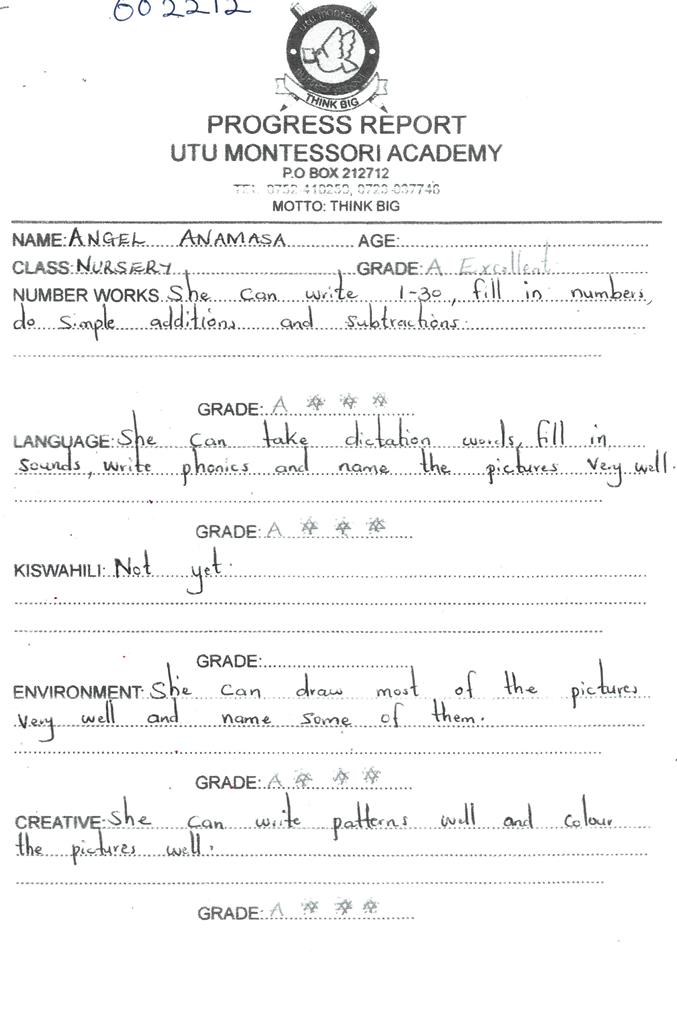 602212
utu montessori
THINK BIG
PROGRESS REPORT
UTU MONTESSORI ACADEMY
P.O BOX 212712
MOTTO: THINK BIG
NAME: ANGEL ANAMASA AGE:
CLASS: NURSERY GRADE: A Excellent
NUMBER WORKS. She can write 1-30, fill in numbers,
do simple additions and subtractions.
GRADE: A
LANGUAGE: She can take dictation words, fill in
sounds, write phonics and name the pictures very well.
GRADE: A
KISWAHILI: Not yet.
GRADE:
ENVIRONMENT: She can draw most of the pictures
very well and name some of them.
GRADE: A
CREATIVE: She can write patterns well and colour
the pictures well.
GRADE: A